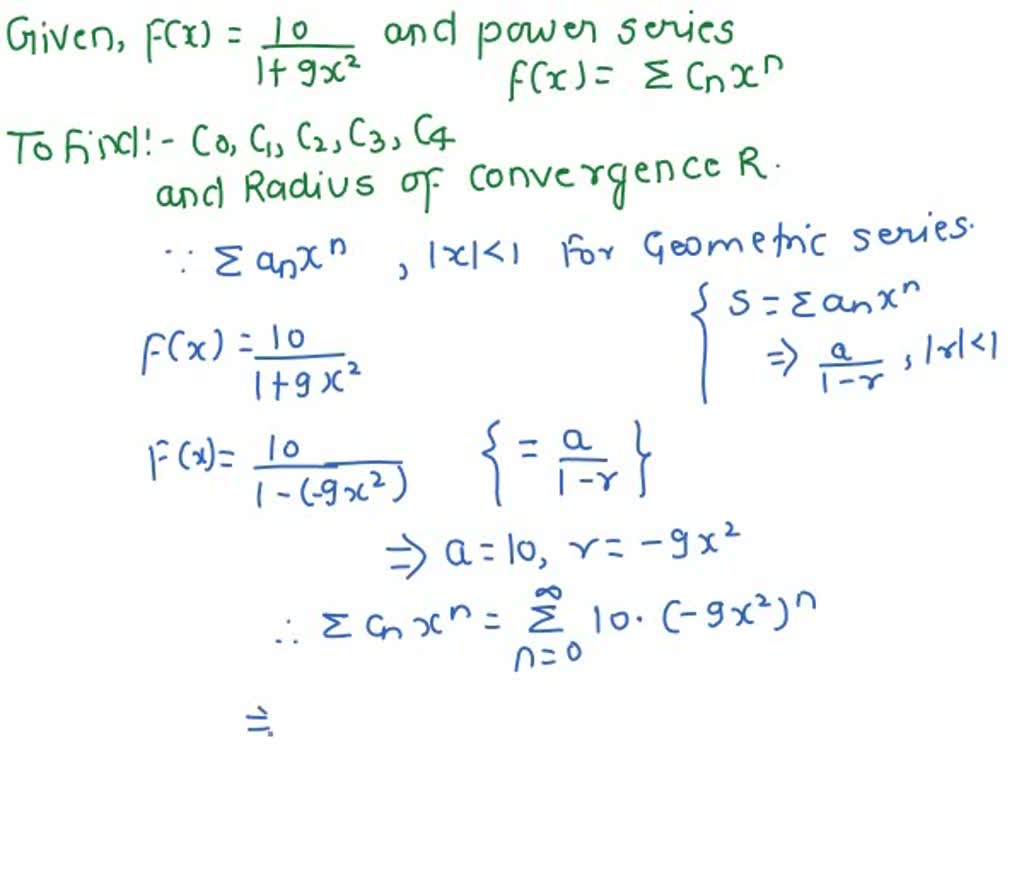 Given, f(x) = 10/(1+9x²) and power series
f(x) = Σ Cn xⁿ
To find:- C0, C1, C2, C3, C4
and Radius of convergence R.
∵ Σ an xⁿ , |x|<1 For Geometric series.
{ S = Σ an xⁿ
f(x) = 10/(1+9x²)
⇒ a/(1-r) , |r|<1
F(x) = 10/(1-(-9x²)) { = a/(1-r) }
⇒ a = 10, r = -9x²
∴ Σ Cn xⁿ = Σ_{n=0}^{∞} 10. (-9x²)ⁿ
=